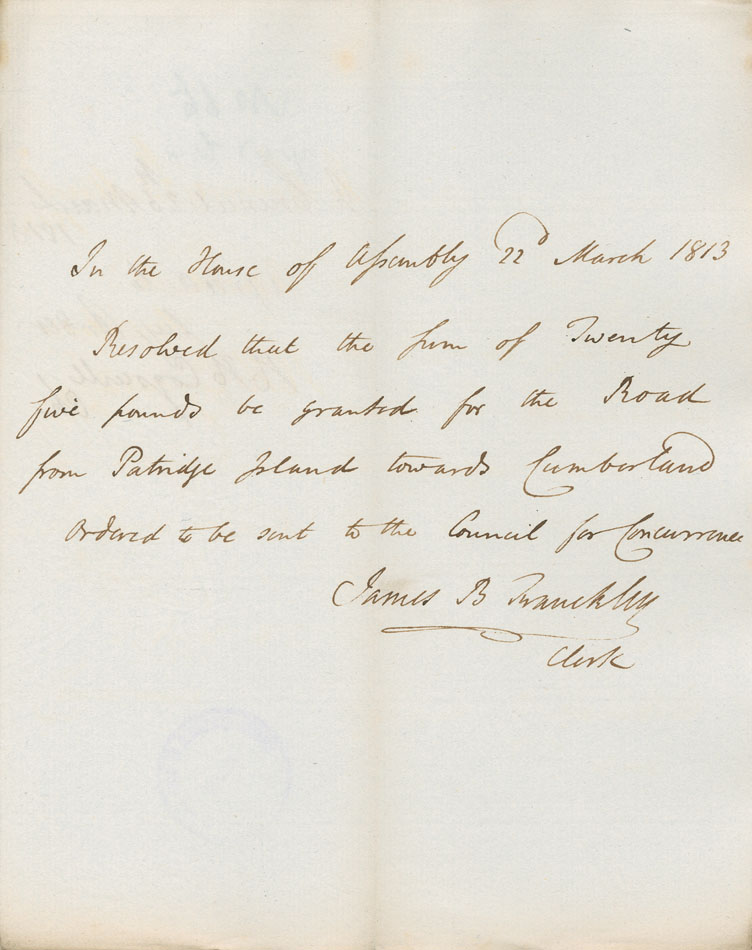 In the House of Assembly 22d March 1813
Resolved that the sum of Twenty
five pounds be granted for the Road
from Patridge Island towards Cumberland
Ordered to be sent to the Council for Concurrence
James B Franckley
Clerk